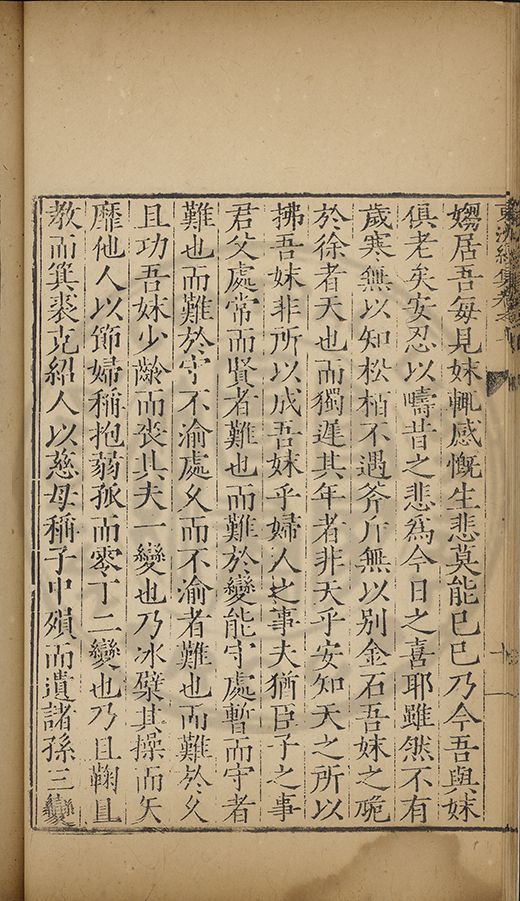 嫠居吾每見妹輒感慨生悲莫能已已乃今吾與妹
俱老矣安忍以疇昔之悲為今日之喜耶雖然不有
歲寒無以知松栢不遇斧斤無以別金石吾妹之
於徐者天也而獨遲其年者非天乎安知天之所以
拂吾妹非所以成吾妹乎婦人之事夫猶臣子之事
君父處常而賢者難也而難於變能守處暫而守者
難也而難於守不渝處久而不渝者難也而難於久
且功吾妹少齡而喪其夫一變也乃冰檗其操而矢
靡他人以節婦稱抱弱孤而零丁二變也乃且鞠且
教而箕裘克紹人以慈母稱子中殞而遺諸孫三變